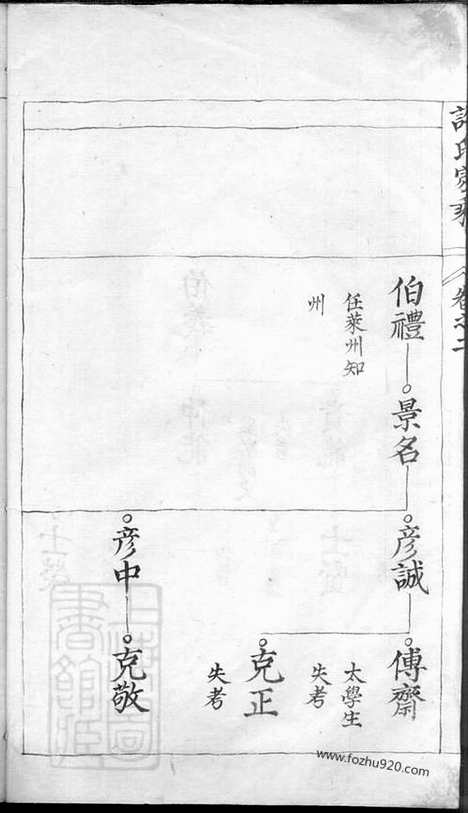 許氏家乘
卷之二
伯禮
任萊州知
州
景名
彦誠
彦中
傅齋
太學生
失考
克正
失考
克敬
www.fozhu920.com